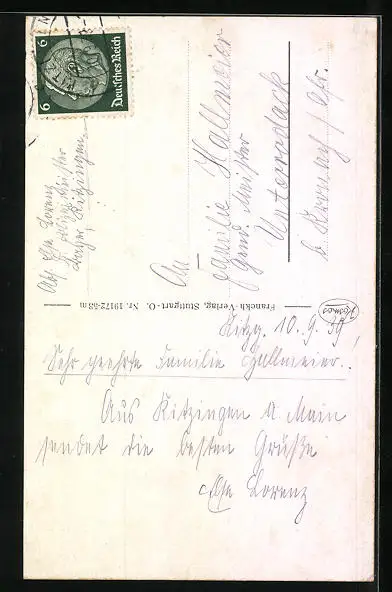 6 Deutsches Reich 6
Abs. Chr. Lorenz
Kitzingen
An
Familie Hallmeier
Gend. Meister
Unterrodach
b. Kronach / Ofr.
Franckh-Verlag, Stuttgart-O. Nr. 19172-53m
Kosmos
Kitzg. 10.9.39
Sehr geehrte Familie Hallmeier!
Aus Kitzingen a. Main
sendet die besten Grüße
Chr. Lorenz